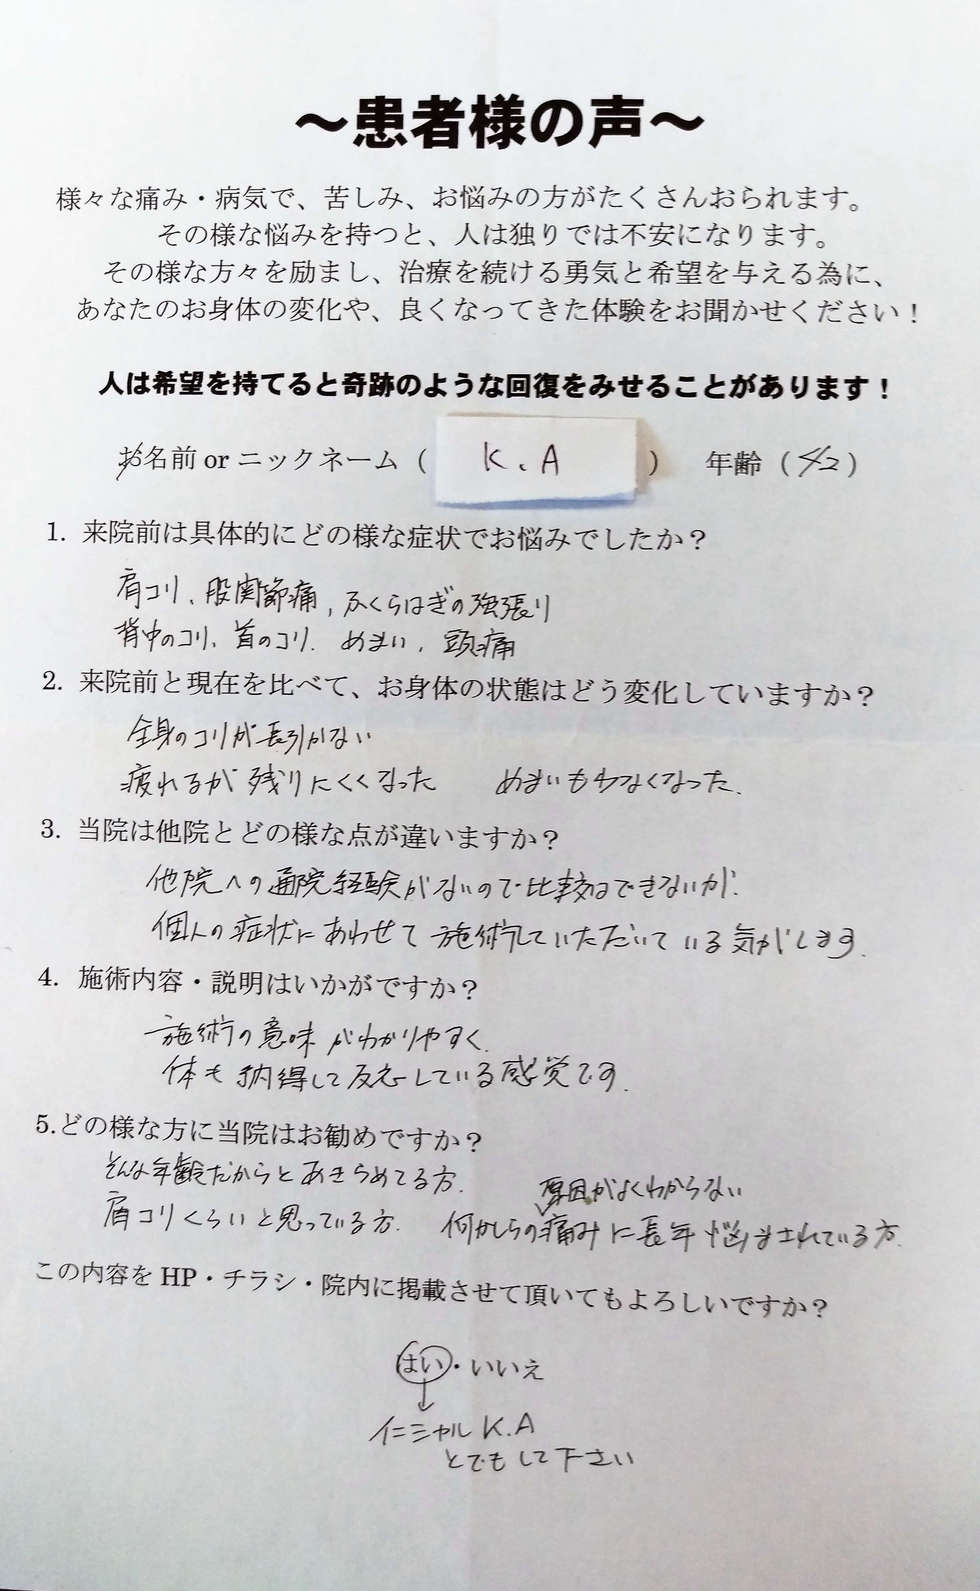 ～患者様の声～
様々な痛み・病気で、苦しみ、お悩みの方がたくさんおられます。
その様な悩みを持つと、人は独りでは不安になります。
その様な方々を励まし、治療を続ける勇気と希望を与える為に、
あなたのお身体の変化や、良くなってきた体験をお聞かせください！
人は希望を持てると奇跡のような回復をみせることがあります！
お名前 or ニックネーム（ K.A ） 年齢（ 42 ）
1. 来院前は具体的にどの様な症状でお悩みでしたか？
肩コリ、股関節痛、ふくらはぎの強張り
背中のコリ、首のコリ、めまい、頭痛
2. 来院前と現在を比べて、お身体の状態はどう変化していますか？
全身のコリが長引かない
疲れるが残りにくくなった めまいもわなくなった.
3. 当院は他院とどの様な点が違いますか？
他院への通院経験がないので比較はできないが、
個人の症状にあわせて施術していただいている気がします.
4. 施術内容・説明はいかがですか？
施術の意味がわかりやすく、
体も納得して反応している感覚です.
5.どの様な方に当院はお勧めですか？
そんな年齢だからとあきらめてる方.
肩コリくらいと思っている方. 原因がよくわからない
何かしらの痛みに長年悩まされている方.
この内容を HP・チラシ・院内に掲載させて頂いてもよろしいですか？
はい・いいえ
↓
イニシャル K.A
とでもして下さい